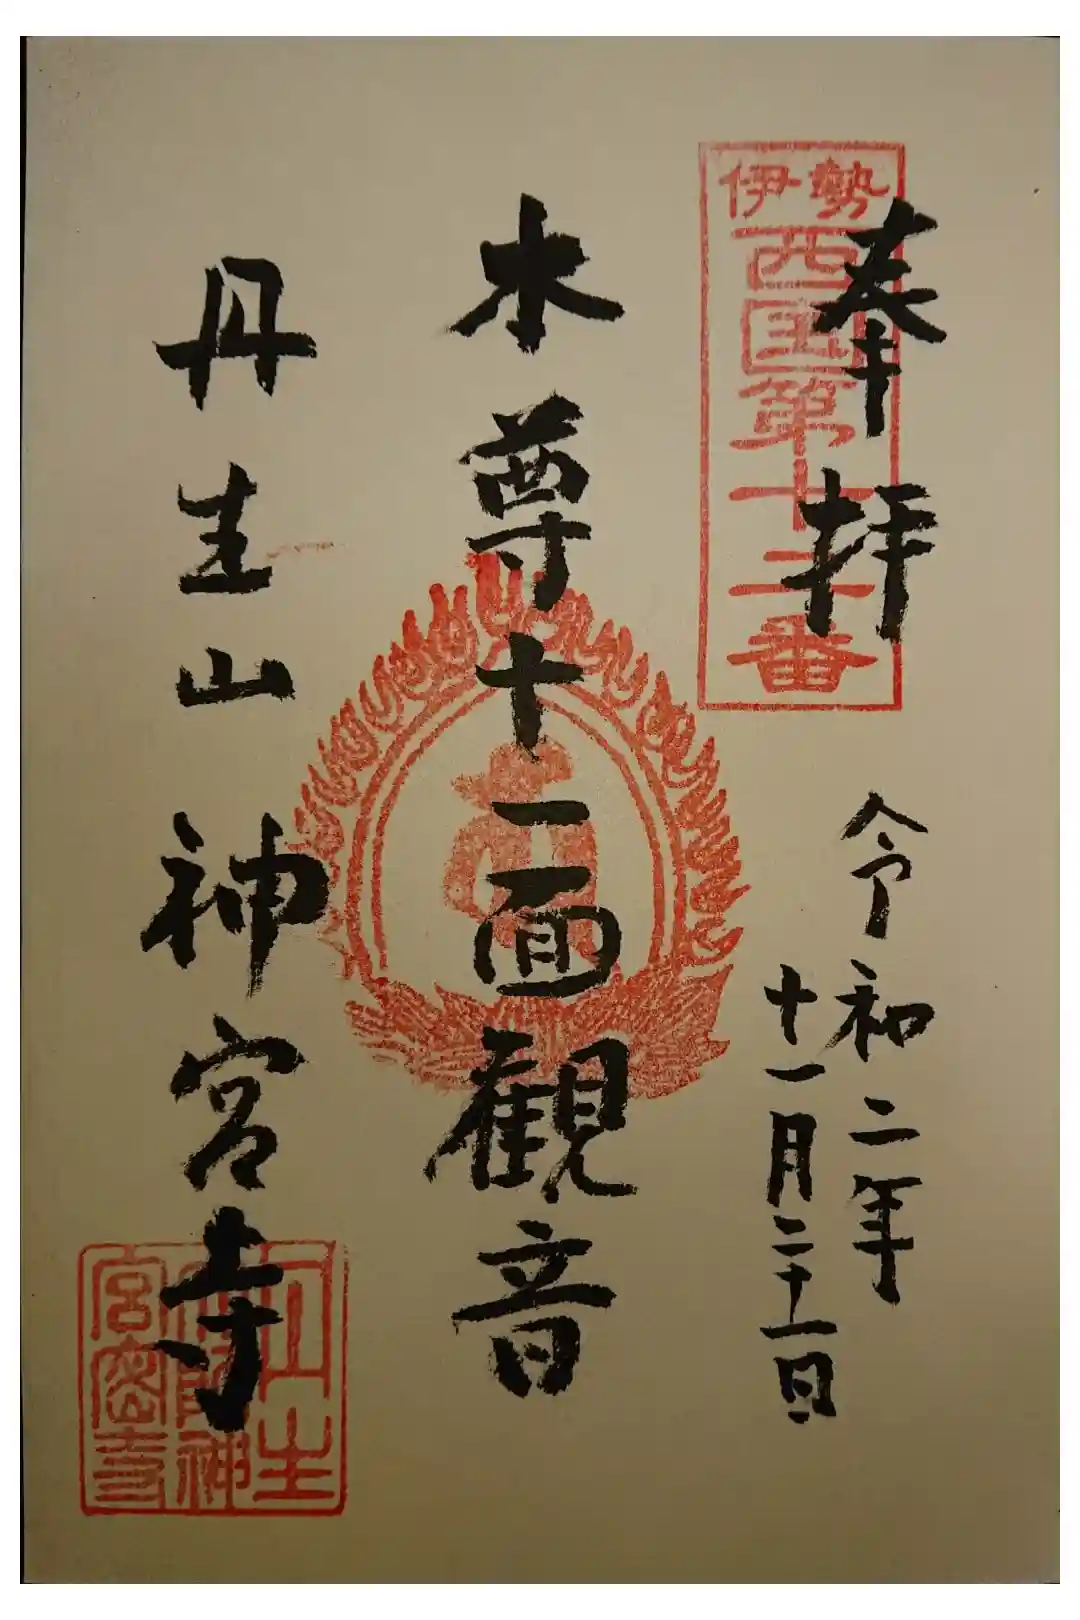 奉拝
伊勢
西国第十二番
令和二年
十一月二十一日
本尊十一面観音
丹生山神宮寺